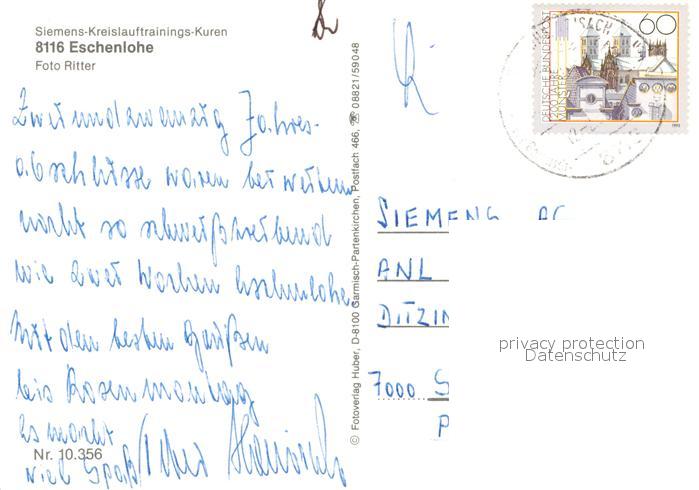 Siemens-Kreislauftrainings-Kuren
8116 Eschenlohe
Foto Ritter
Zweiundzwanzig Jahres-
abschlüsse waren bei weitem
nicht so schweißtreibend
wie zwei Wochen Eschenlohe
Mit den besten Grüßen
bis Rosenmontag
Es macht
viel Spaß! Ihr
Nr. 10.356
© Fotoverlag Huber, D-8100 Garmisch-Partenkirchen, Postfach 466, ☎ 08821/59048
DEUTSCHE BUNDESPOST
1200 JAHRE
MÜNSTER
60
1993
SIEMENS
ANL
DITZIN
7000 S
P
privacy protection
Datenschutz